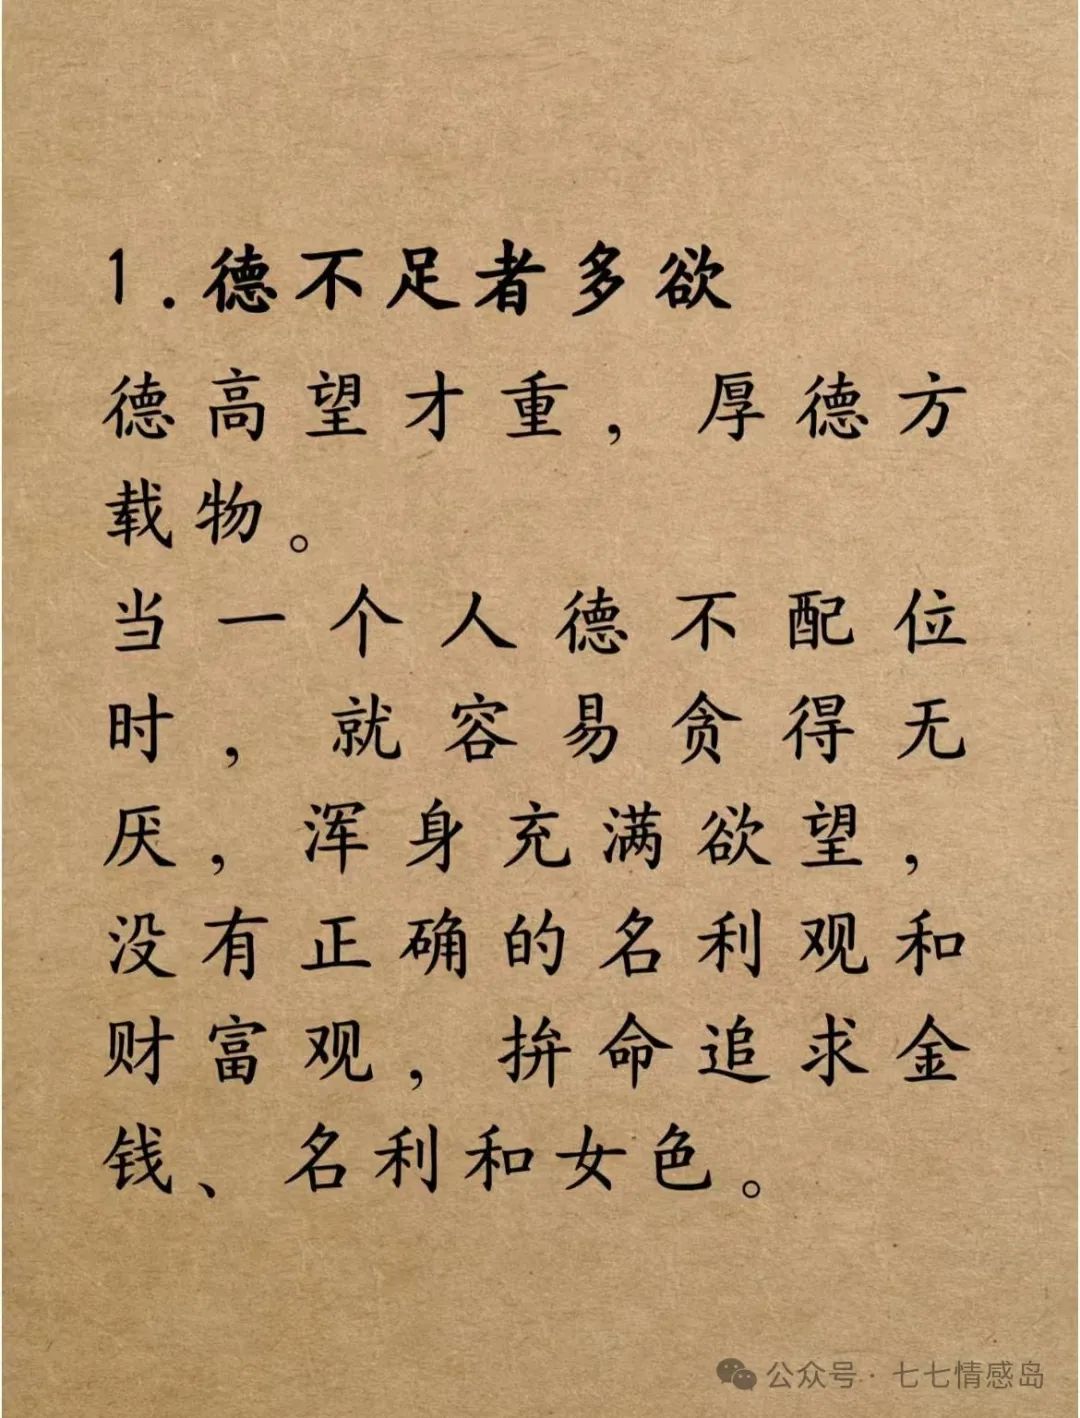 1.德不足者多欲
德高望才重，厚德方
载物。
当一个人德不配位
时，就容易贪得无
厌，浑身充满欲望，
没有正确的名利观和
财富观，拚命追求金
钱、名利和女色。
公众号·七七情感岛